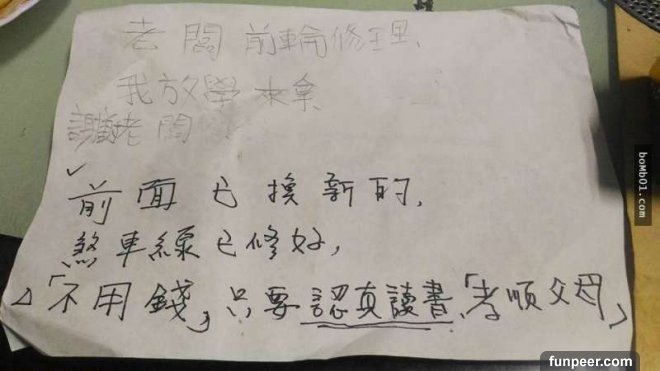 老闆 前輪修理、
我放學來拿
謝謝老闆
✓
前面已換新的,
煞車線已修好,
△「不用錢」只要認真讀書、「孝順父母」
boMb01.com
funpeer.com